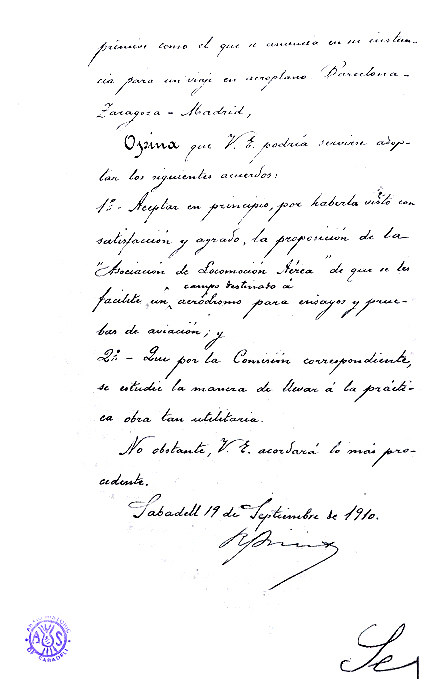 premios como el que se anuncia en su instan-
cia para un viaje en aeroplano Barcelona-
Zaragoza - Madrid,
Opina que V. E. podría servirse adop-
tar los siguientes acuerdos:
1º.- Aceptar en principio, por haberla visto con
satisfacción y agrado, la proposición de la
"Asociación de Locomoción Aérea" de que se les
campo destinado á
facilite un aeródromo para ensayos y prue-
bas de aviación; y
2º.- Que por la Comisión correspondiente,
se estudie la manera de llevar á la prácti-
ca obra tan utilitaria.
No obstante, V. E. acordará lo más pro-
cedente.
Sabadell 19 de Septiembre de 1910.
AS
DE SABADELL
Se